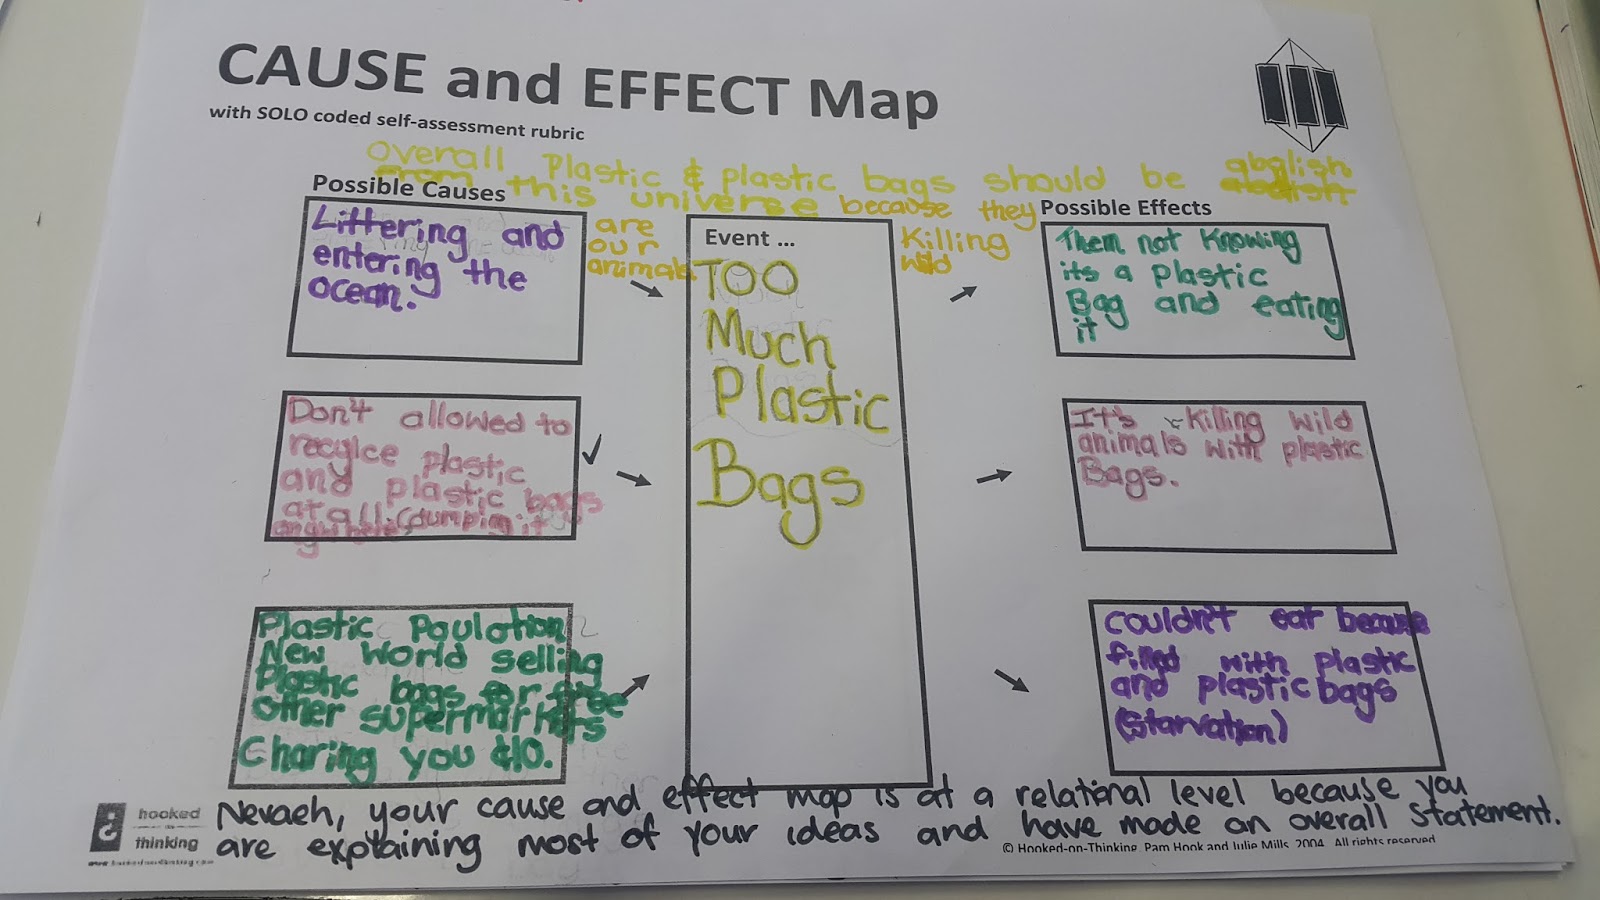 CAUSE and EFFECT Map
with SOLO coded self-assessment rubric
Overall Plastic & plastic bags should be abolish
from this universe because they
are
our
animals.
Killing
wild
Possible Causes
Littering and
entering the
ocean.
Don't allowed to
recylce plastic
and plastic bags
at all (dumping it
Plastic Paulation
New World selling
Plastic bags for free
other supermarkets
Charing you $10.
Event ...
TOO
Much
Plastic
Bags
Possible Effects
Them not Knowing
its a plastic
Bag and eating
it
It's Killing wild
animals with plastic
Bags.
couldn't eat because
filled with plastic
and plastic bags
(Starvation)
Nevaeh, your cause and effect map is at a relational level because you
are explaining most of your ideas and have made an overall statement.
hooked
thinking
© Hooked-on-Thinking, Pam Hook and Julie Mills, 2004. All rights reserved